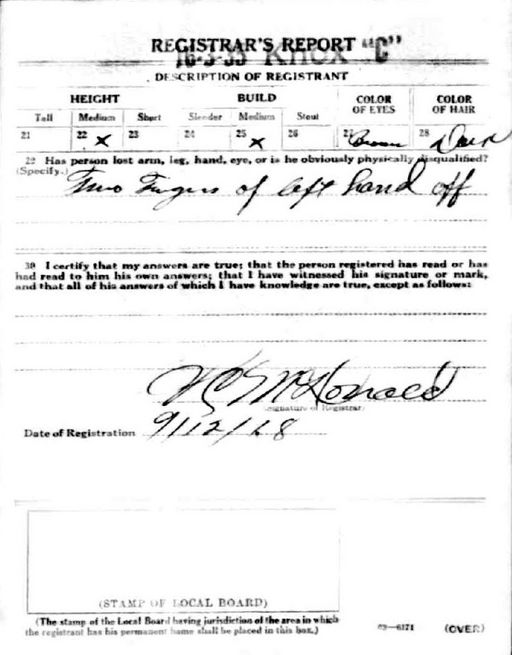 REGISTRAR'S REPORT "C"
16-3-35 KNOX
DESCRIPTION OF REGISTRANT
HEIGHT BUILD COLOR OF EYES COLOR OF HAIR
Tall Medium Short Slender Medium Stout
21 22 x 23 24 25 x 26 27 Brown 28 Dark
29 Has person lost arm, leg, hand, eye, or is he obviously physically disqualified?
(Specify.) Two Fingers of left hand off
30 I certify that my answers are true; that the person registered has read or has
had read to him his own answers; that I have witnessed his signature or mark,
and that all of his answers of which I have knowledge are true, except as follows:
McDonald
(Signature of Registrar)
Date of Registration 9/12/18
(STAMP OF LOCAL BOARD)
(The stamp of the Local Board having jurisdiction of the area in which
the registrant has his permanent home shall be placed in this box.)
03—6171 (OVER)